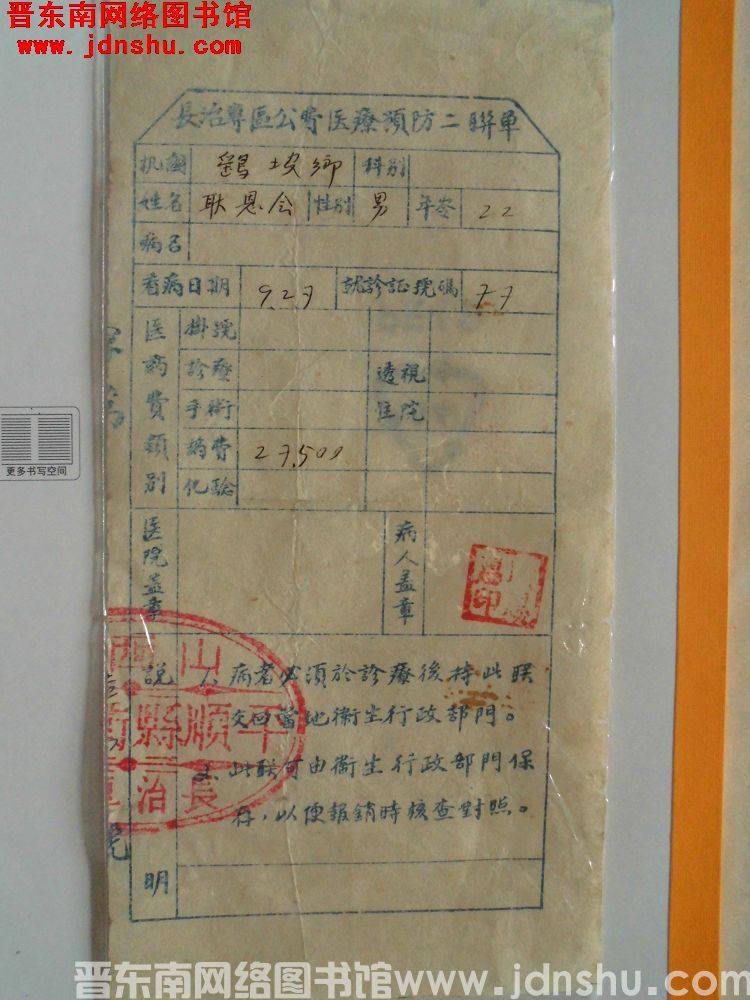 晋东南网络图书馆
www.jdnshu.com
長治專區公費医療預防二聯單
机関 坡鄉 科別
姓名 耿恩会 性別 男 年令 22
病名
看病日期 9.27 就診証號碼 77
医药費類別
掛號
診療 透視
手術 住院
葯費 27,500
化驗
医院盖章 病人盖章
印
說明
1、病者必須於診療後持此联
交回當地衛生行政部門。
2、此联可由衛生行政部門保
存，以便報銷時核查對照。
山西
平順縣衛
長治
院
更多书写空间
晋东南网络图书馆www.jdnshu.com